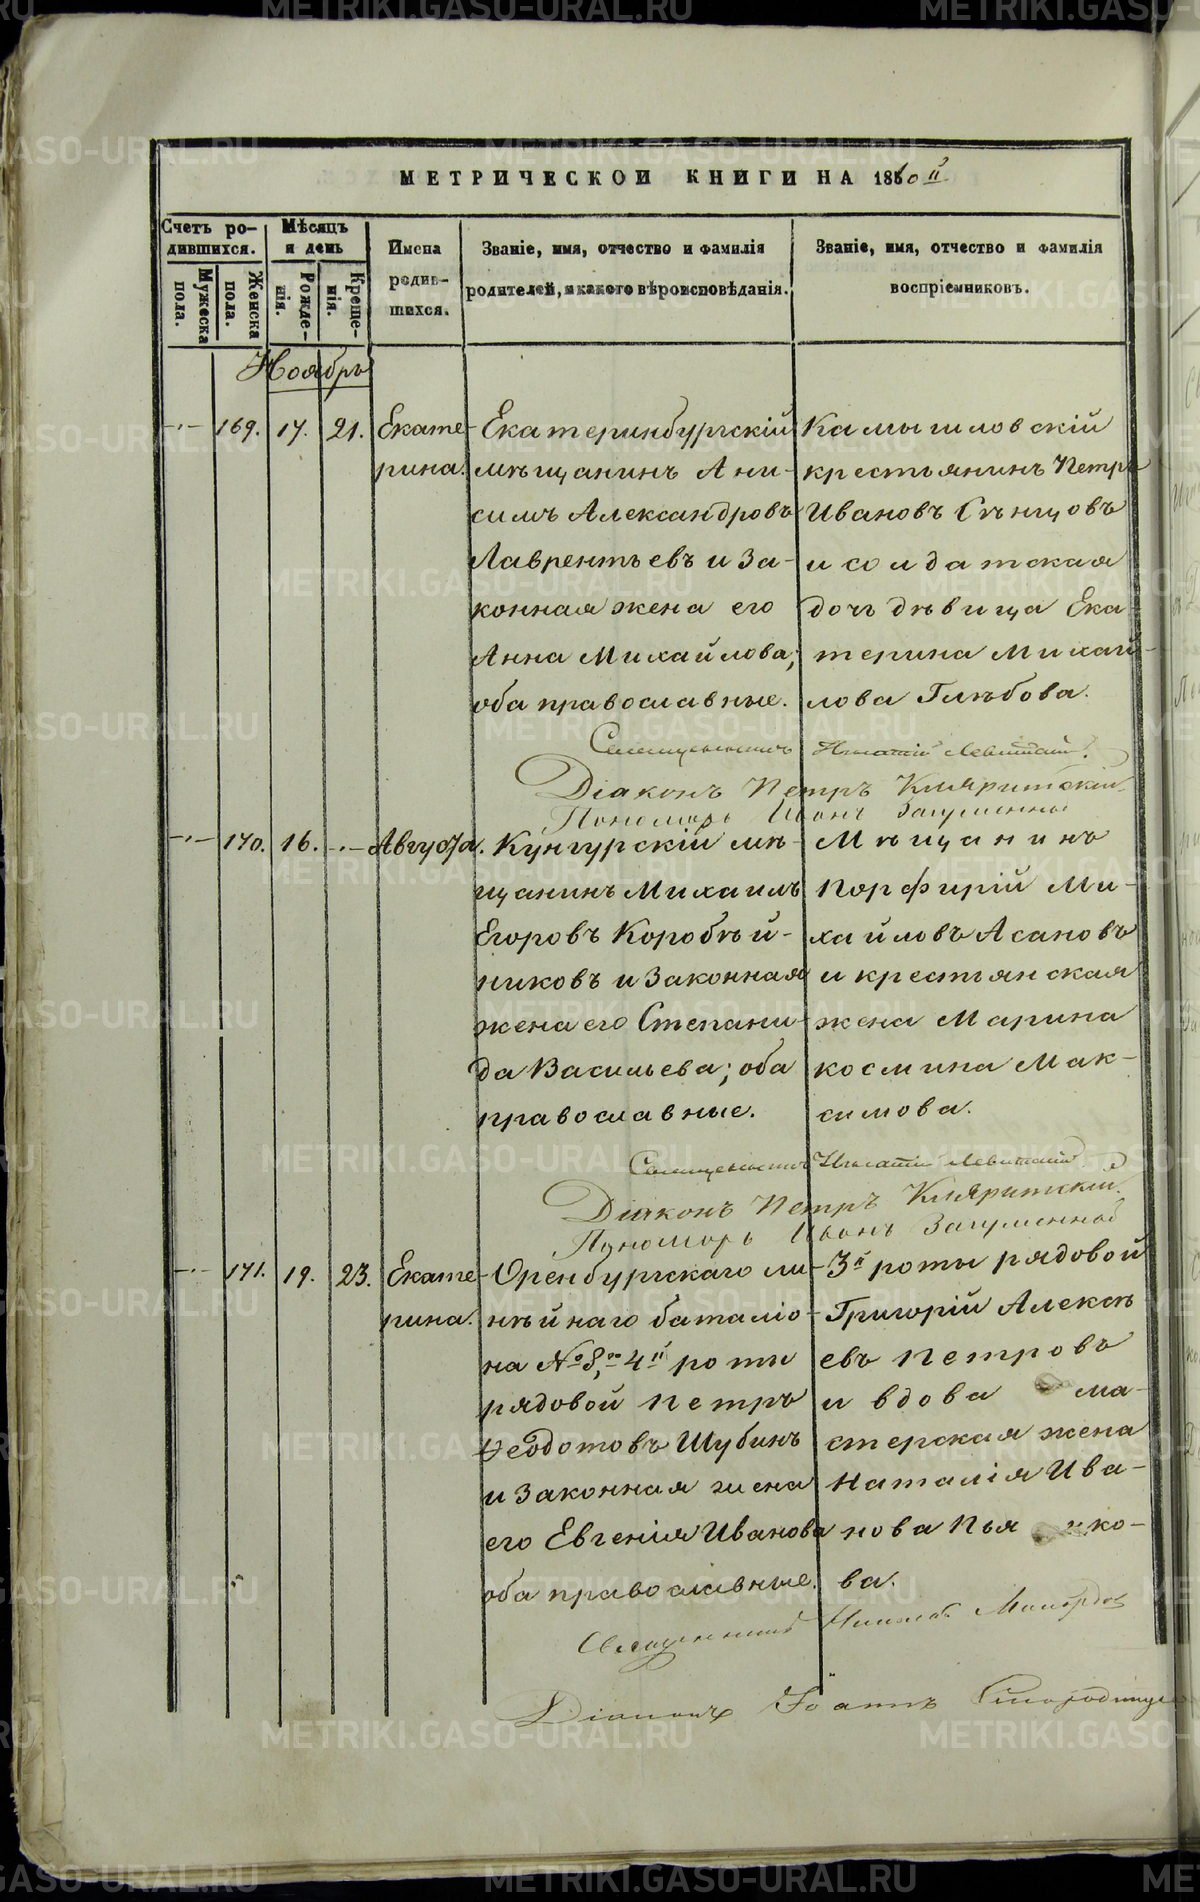 МЕТРИЧЕСКОЙ КНИГИ НА 1860й
Счетъ ро-
дившихся.
Мужеска
пола.
Женска
пола.
Мѣсяцъ
и день
Рожде-
нія.
Креще-
нія.
Имена
родив-
шихся.
Званіе, имя, отчество и фамилія
родителей, и какого вѣроисповѣданія.
Званіе, имя, отчество и фамилія
воспріемниковъ.
Ноябрь
169. 17. 21.
Екате-
рина.
Екатеринбургскій
мѣщанинъ Ани-
симъ Александровъ
Лаврентьевъ и за-
конная жена его
Анна Михайлова;
оба православные.
Камышловскій
крестьянинъ Петръ
Ивановъ Сѣнцовъ
и солдатская
дочь дѣвица Ека-
терина Михай-
лова Глѣбова.
Священникъ Игнатій Левитскій.
Діаконъ Петръ Кляритскій
Пономарь Иванъ Загуменной
170. 16.
Августа.
Кунгурскій мѣ-
щанинъ Михаилъ
Егоровъ Коробѣй-
никовъ и законная
жена его Степани-
да Васильева; оба
православные.
Мѣщанинъ
Порфирій Ми-
хайловъ Асановъ
и крестьянская
жена Марина
Космина Мак-
симова.
Священникъ Игнатій Левитскій
Діаконъ Петръ Кляритскій.
Пономарь Иванъ Загуменной
171. 19. 23.
Екате-
рина.
Оренбургскаго ли-
нѣйнаго баталіо-
на № 8го 4й роты
рядовой Петръ
Ѳеодотовъ Шубинъ
и законная жена
его Евгенія Иванова
оба православные.
3й роты рядовой
Григорій Алексѣ-
евъ Петровъ
и вдова ма-
стерская жена
Наталія Ива-
нова Пья нко-
ва.
Священникъ Николай
Діаконъ Іоаннъ
METRIKI.GASO-URAL.RU